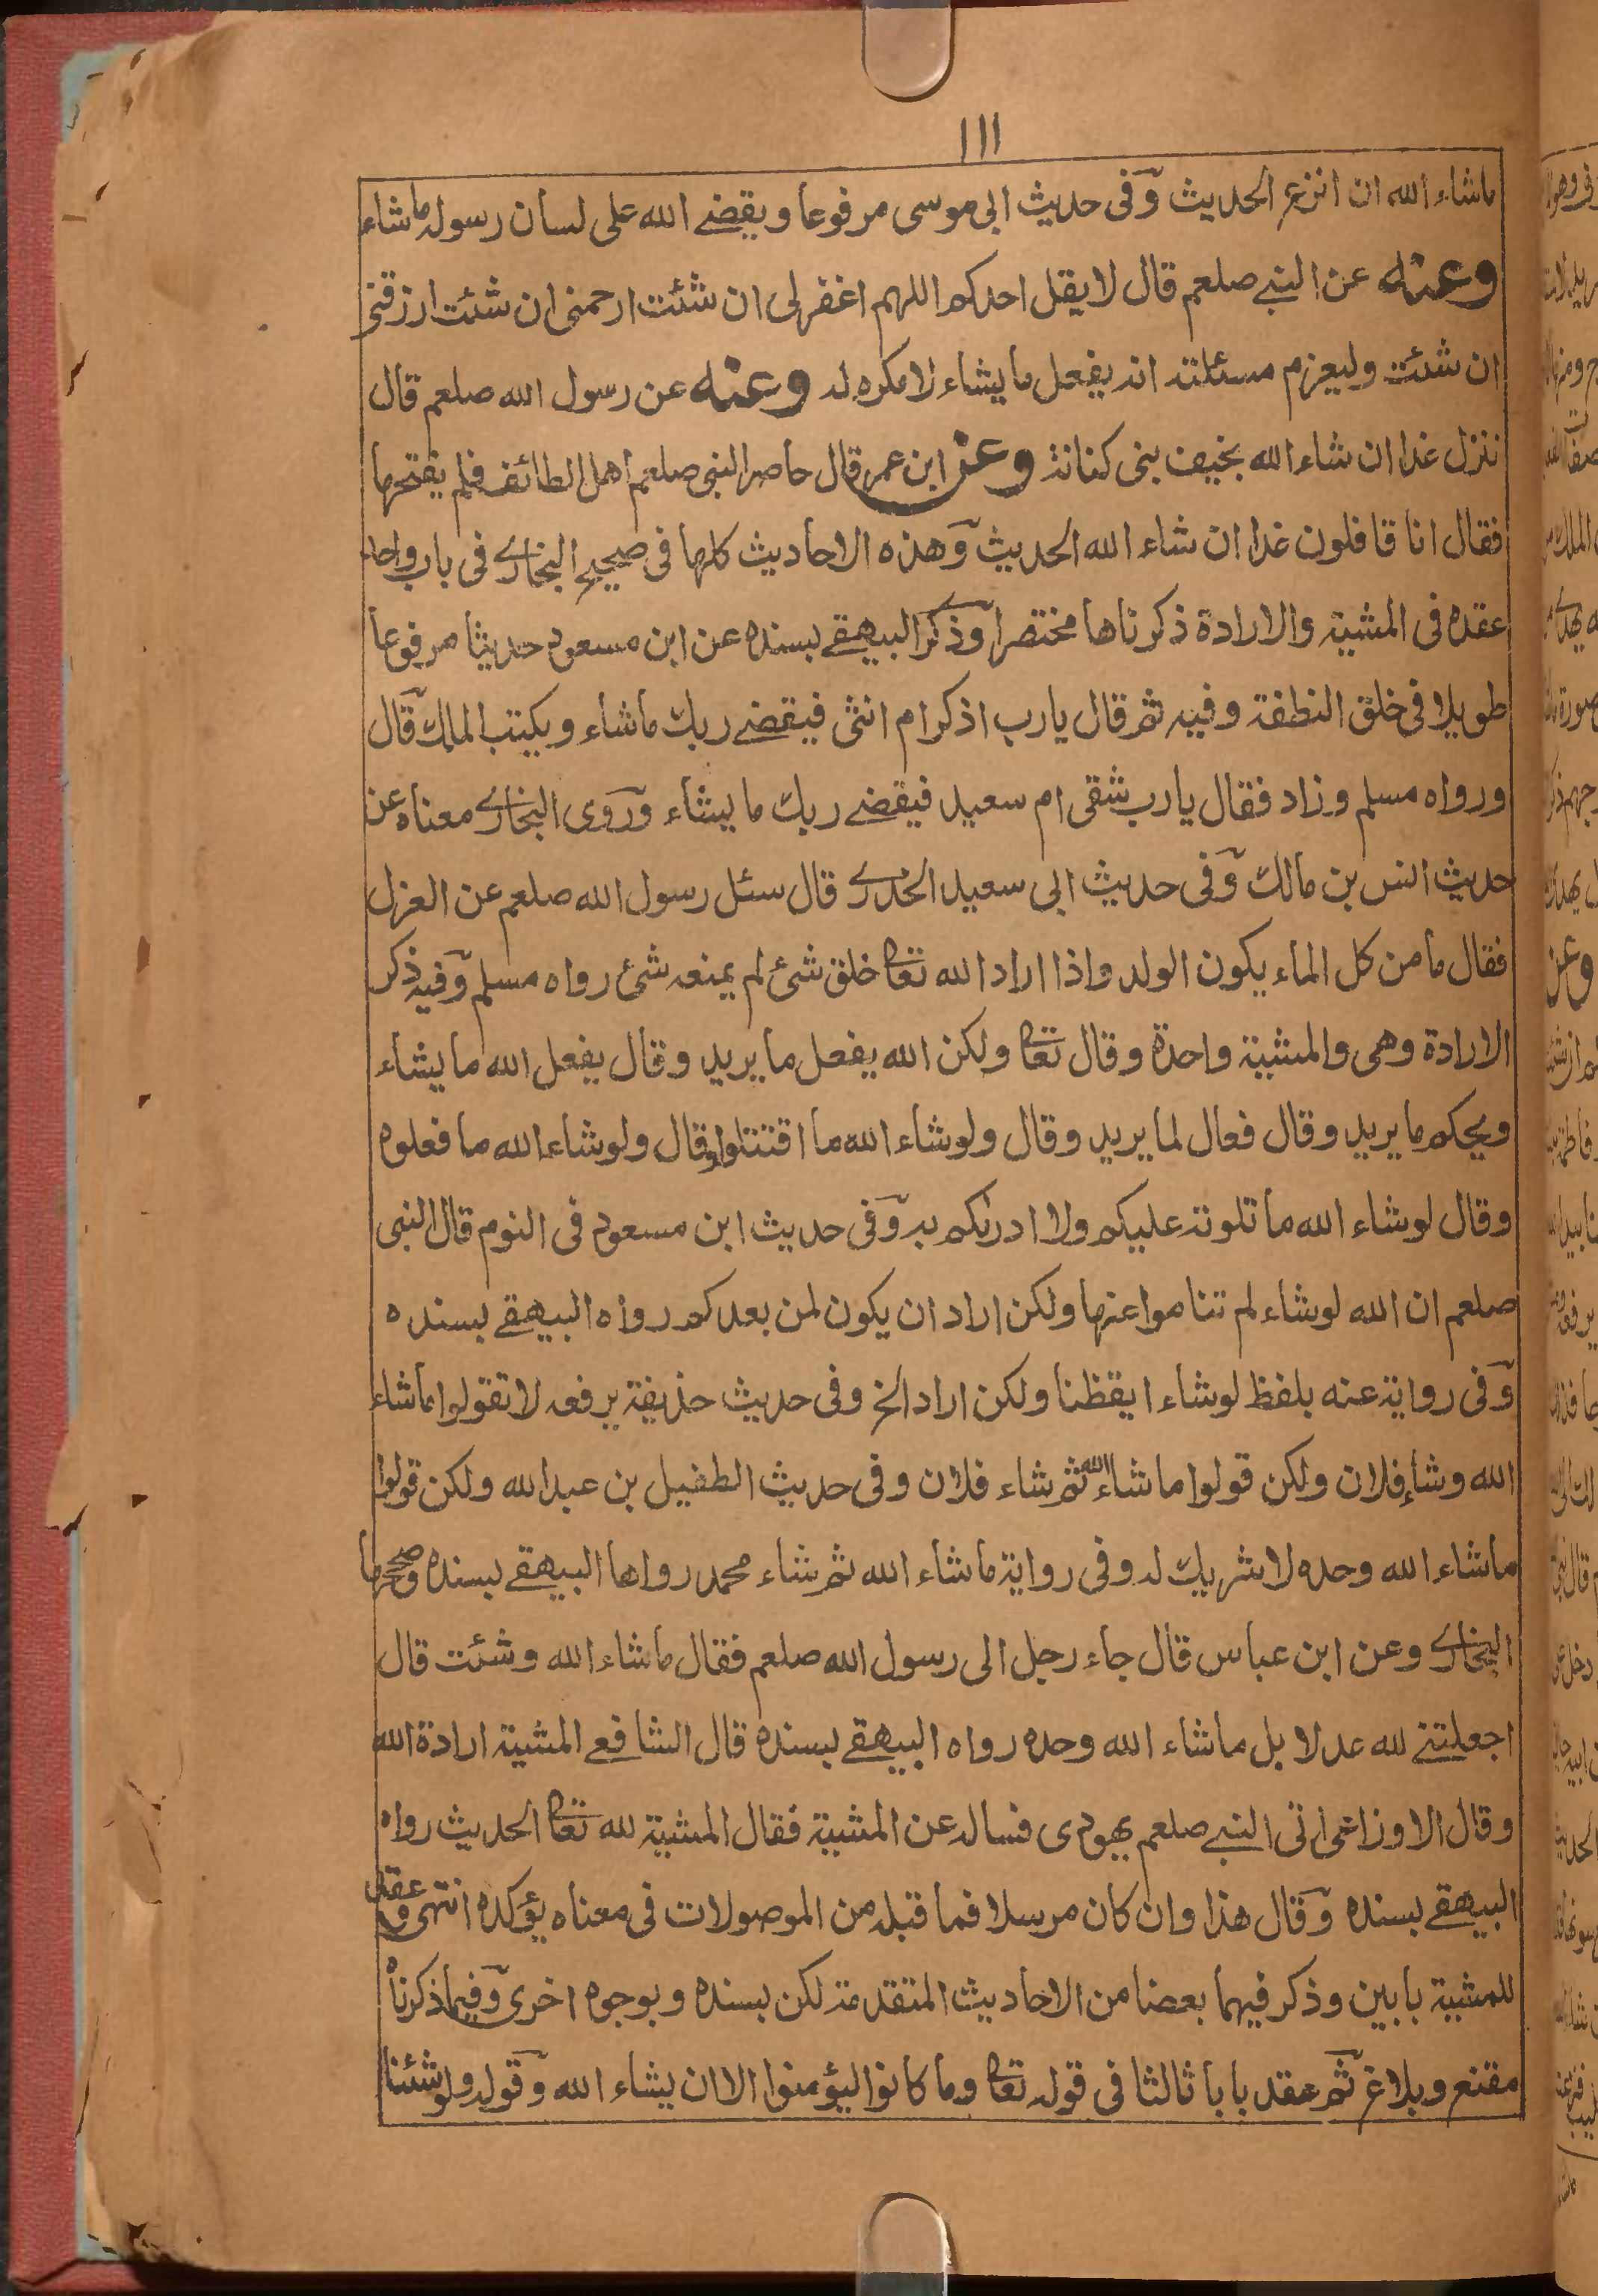 ١١١
ماشاء الله ان انزع الحديث وفى حديث ابى موسى مرفوعا ويقضے الله على لسان رسوله ماشاء
وعنه عن النبے صلعم قال لا يقل احدكم اللهم اغفر لى ان شئت ارحمنى ان شئت ارزقنى
ان شئت وليعزم مسئلته انه يفعل ما يشاء لا مكره له وعنه عن رسول الله صلعم قال
ننزل غدا ان شاء الله بخيف بنى كنانة وعن ابن عمر قال حاصر النبى صلعم اهل الطائف فلم يفتحها
فقال انا قافلون غدا ان شاء الله الحديث وهذه الاحاديث كلها فى صحيح البخارے فى باب واحد
عقده فى المشية والارادة ذكرناها مختصرا وذكر البيهقے بسنده عن ابن مسعود حديثا مرفوعا
طويلا فى خلق النطفة وفيه ثم قال يا رب اذكر ام انثى فيقضے ربك ماشاء ويكتب الملك قال
ورواه مسلم وزاد فقال يا رب شقى ام سعيد فيقضے ربك ما يشاء وروى البخارے معناه عن
حديث انس بن مالك وفى حديث ابى سعيد الخدرے قال سئل رسول الله صلعم عن العزل
فقال ما من كل الماء يكون الولد واذا اراد الله تعا خلق شئ لم يمنعه شئ رواه مسلم وفيه ذكر
الارادة وهى والمشية واحدة وقال تعا ولكن الله يفعل ما يريد وقال يفعل الله ما يشاء
ويحكم ما يريد وقال فعال لما يريد وقال ولو شاء الله ما اقتتلوا وقال ولو شاء الله ما فعلوه
وقال لو شاء الله ما تلوته عليكم ولا ادرٰىكم به وفى حديث ابن مسعود فى النوم قال النبى
صلعم ان الله لو شاء لم تناموا عنها ولكن اراد ان يكون لمن بعدكم رواه البيهقے بسنده
وفى رواية عنه بلفظ لو شاء ايقظنا ولكن اراد الخ وفى حديث حذيفة يرفعه لا تقولوا ماشاء
الله وشاء فلان ولكن قولوا ما شاء الله ثم شاء فلان وفى حديث الطفيل بن عبد الله ولكن قولوا
ماشاء الله وحده لا شريك له وفى رواية ماشاء الله ثم شاء محمد رواها البيهقے بسنده وصححها
البخارے وعن ابن عباس قال جاء رجل الى رسول الله صلعم فقال ماشاء الله وشئت قال
اجعلتنے لله عدلا بل ماشاء الله وحده رواه البيهقے بسنده قال الشافعے المشية ارادة الله
وقال الاوزاعى اتى النبے صلعم يهودى فساله عن المشية فقال المشية لله تعا الحديث رواه
البيهقے بسنده وقال هذا وان كان مرسلا فما قبله من الموصولات فى معناه يؤكده انتهى وقد عقد
للمشية بابين وذكر فيهما بعضا من الاحاديث المتقدمة لكن بسنده وبوجوه اخرى وفيما ذكرناه
مقنع وبلاغ ثم عقد بابا ثالثا فى قوله تعا وما كانوا ليؤمنوا الا ان يشاء الله وقوله ولو شئنا